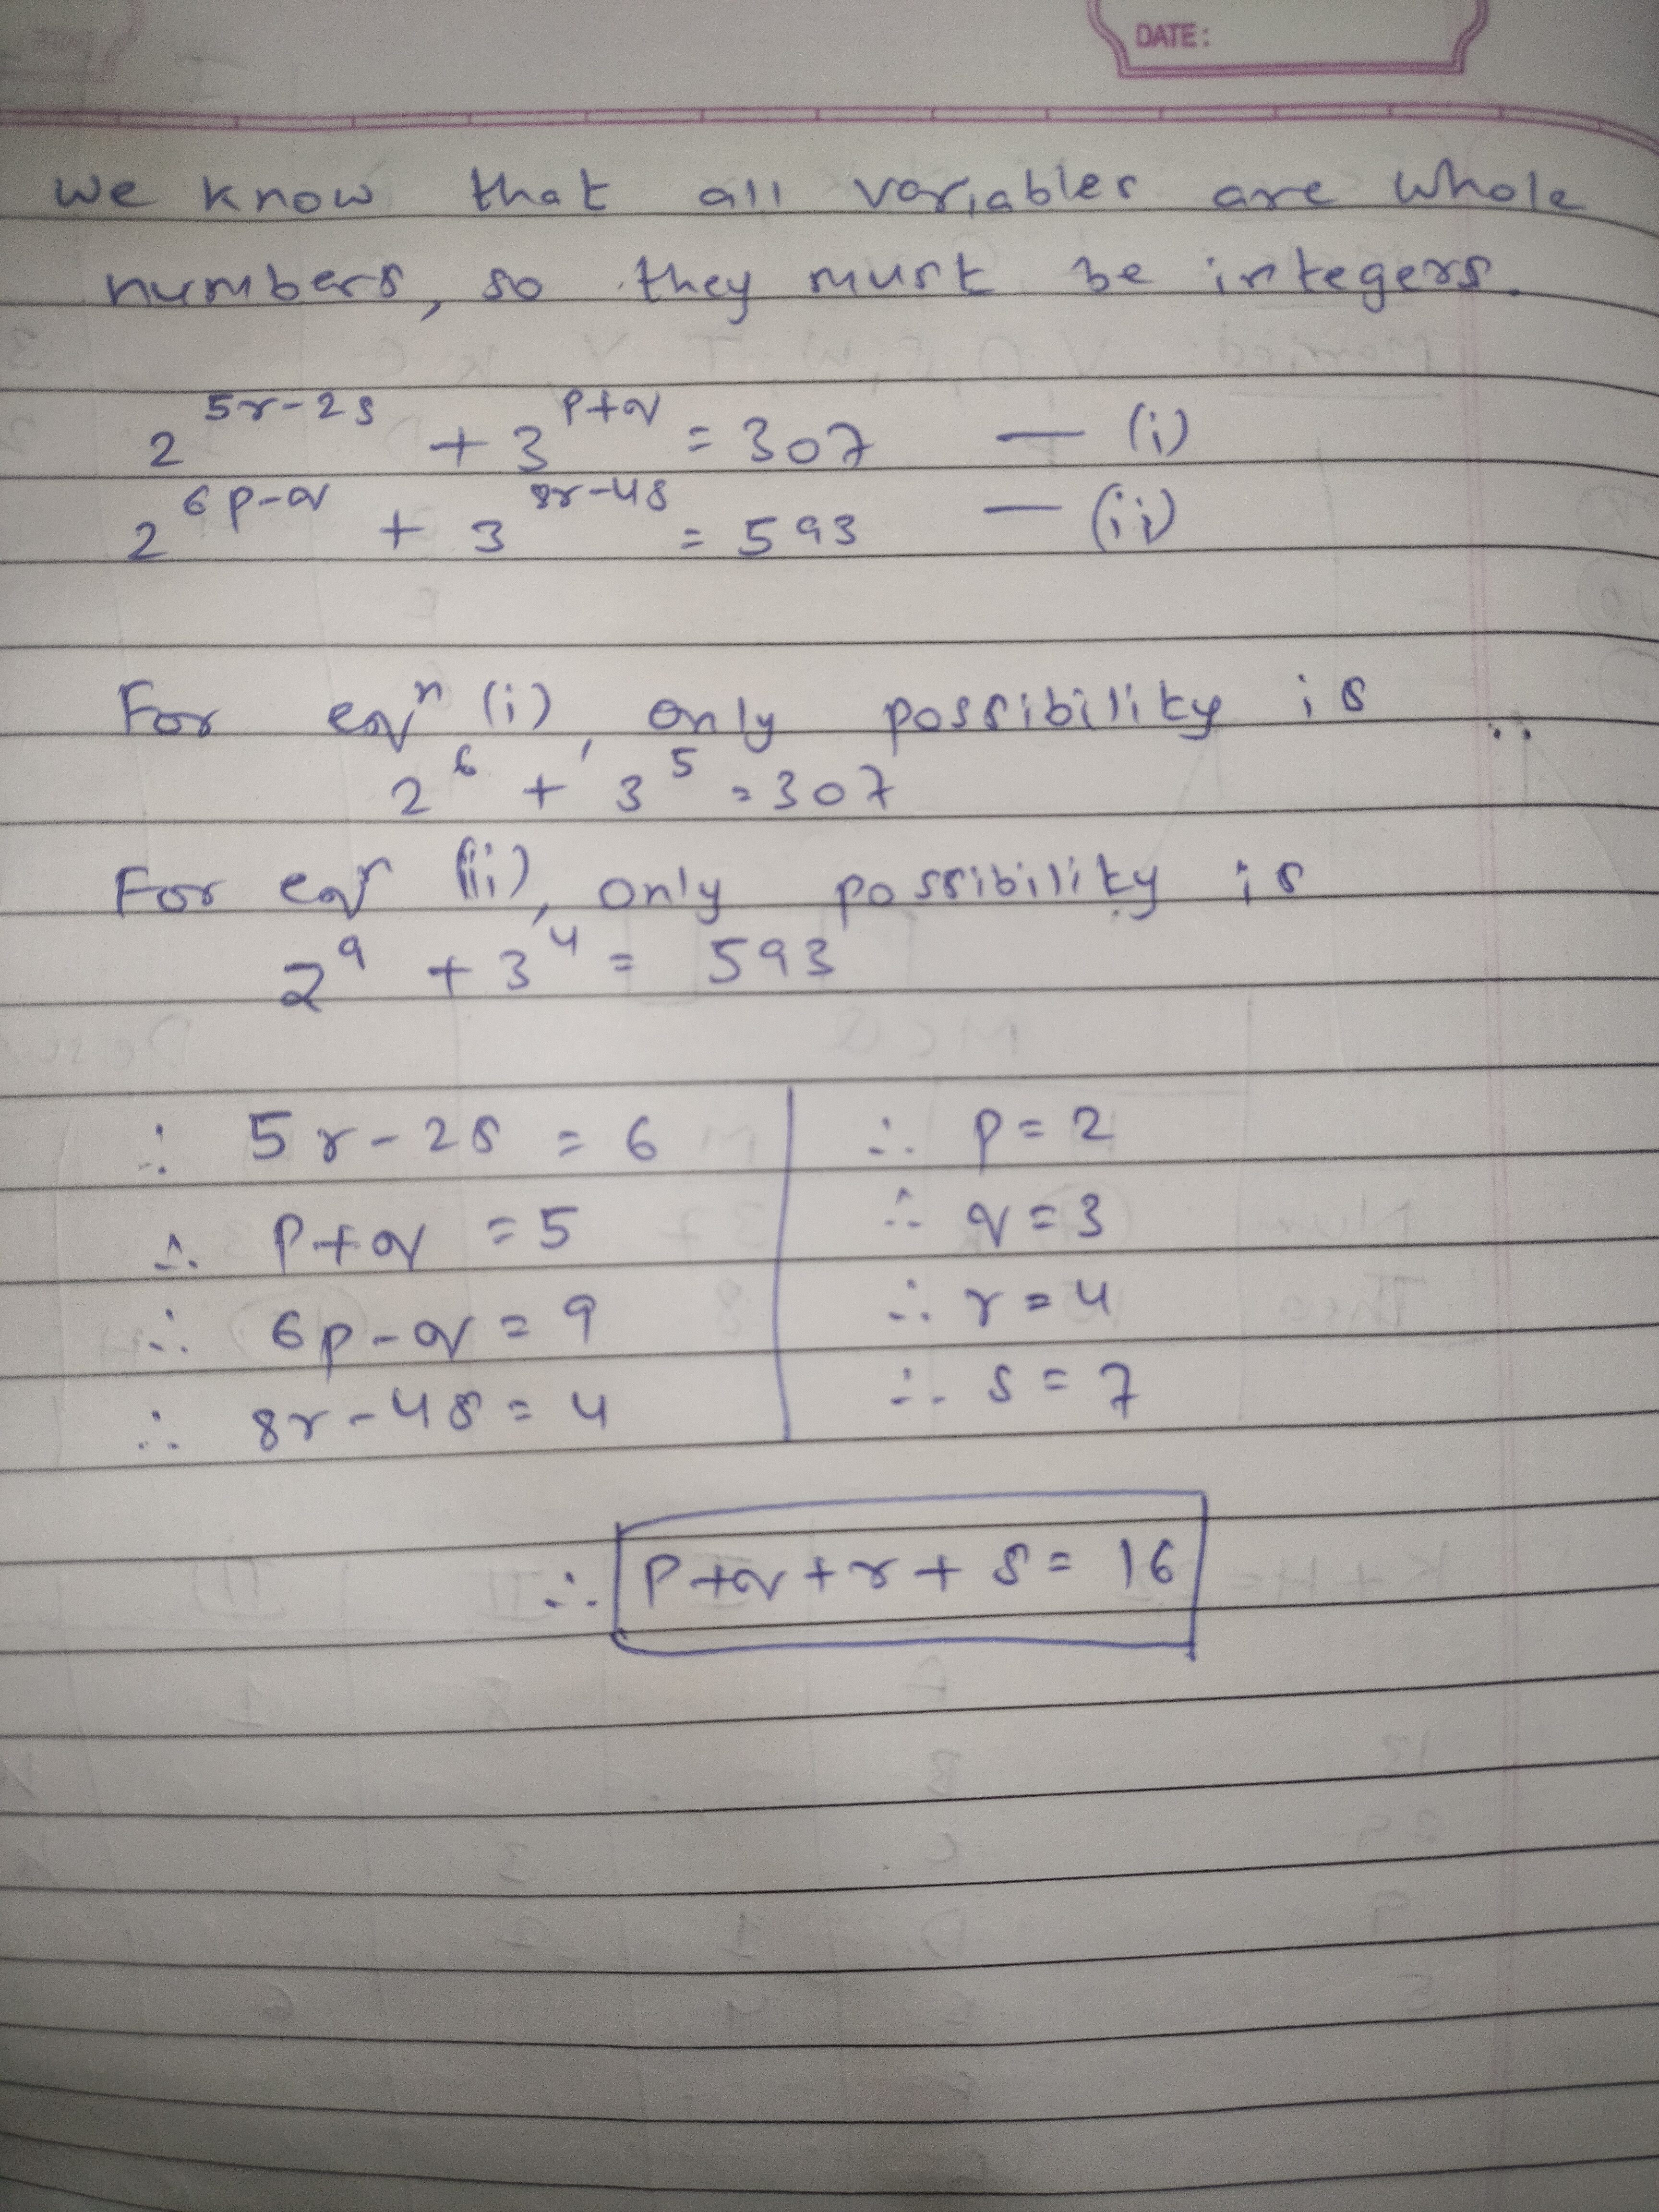 DATE:
We know that all variables are whole
numbers, so they must be integers.
2^(5r-2s) + 3^(p+q) = 307 — (i)
2^(6p-q) + 3^(8r-4s) = 593 — (ii)
For eqⁿ (i), only possibility is
2^6 + 3^5 = 307
For eqⁿ (ii), only possibility is
2^9 + 3^4 = 593
∴ 5r-2s = 6
∴ p+q = 5
∴ 6p-q = 9
∴ 8r-4s = 4
∴ p = 2
∴ q = 3
∴ r = 4
∴ s = 7
∴ p+q+r+s = 16